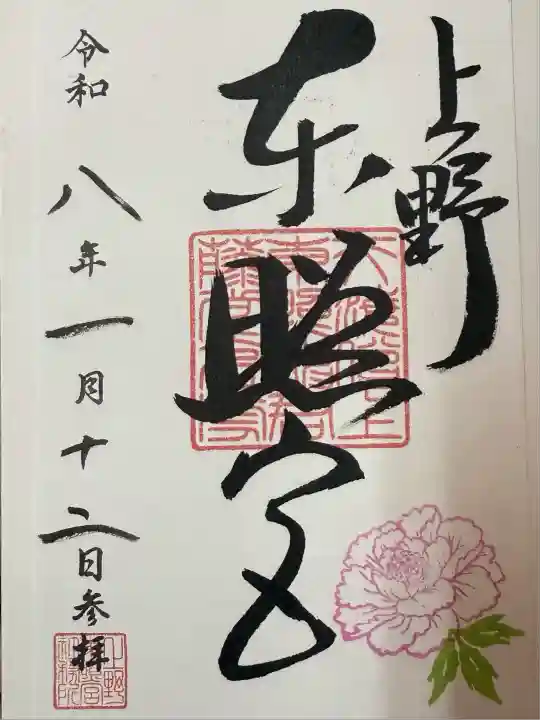 上野
東照宮
令和八年一月十二日参拝